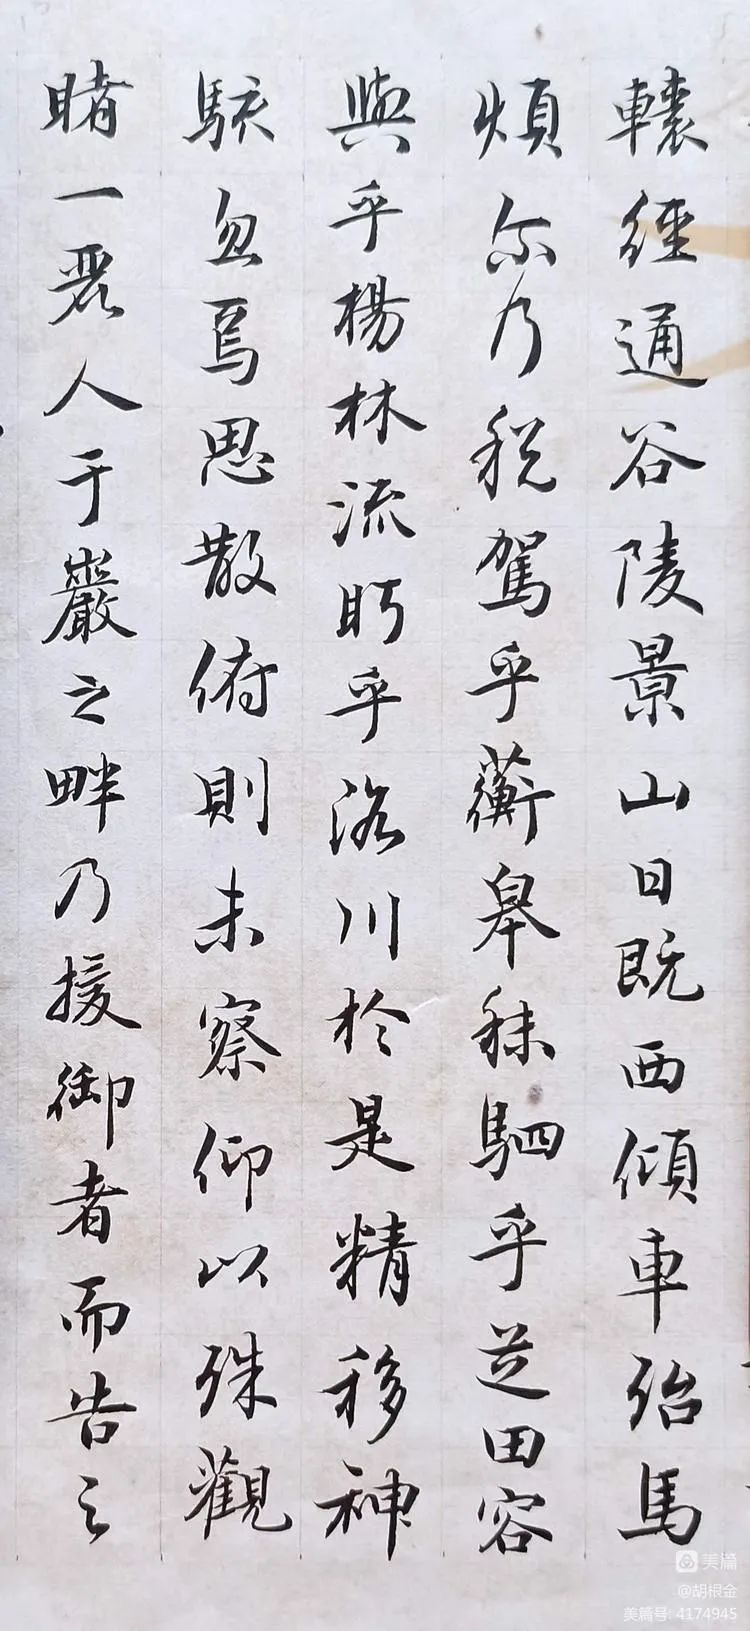 轘經通谷陵景山日既西傾車殆馬
煩尔乃税駕乎蘅皋秣駟乎芝田容
與乎楊林流眄乎洛川於是精移神
駭忽焉思散俯則未察仰以殊觀
睹一麗人于巖之畔乃援御者而告之
美篇
@胡根金
美篇号: 4174945